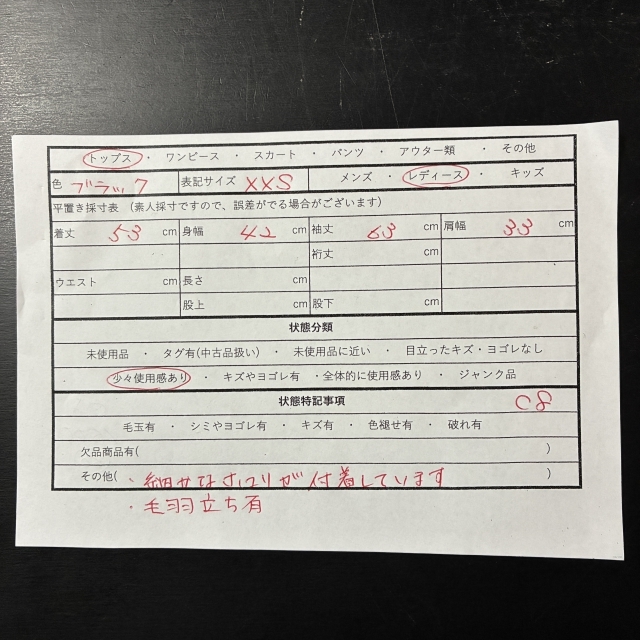 トップス ・ ワンピース ・ スカート ・ パンツ ・ アウター類 ・ その他
色 ブラック 表記サイズ XXS メンズ ・ レディース ・ キッズ
平置き採寸表 (素人採寸ですので、誤差がでる場合がございます)
着丈 53 cm 身幅 42 cm 袖丈 63 cm 肩幅 33 cm
裄丈 cm
ウエスト cm 長さ cm
股上 cm 股下 cm
状態分類
未使用品 ・ タグ有(中古品扱い) ・ 未使用品に近い ・ 目立ったキズ・ヨゴレなし
少々使用感あり ・ キズやヨゴレ有 ・全体的に使用感あり ・ ジャンク品
状態特記事項 C8
毛玉有 ・ シミやヨゴレ有 ・ キズ有 ・ 色褪せ有 ・ 破れ有
欠品商品有( )
その他( ・細かなホコリが付着しています )
・毛羽立ち有